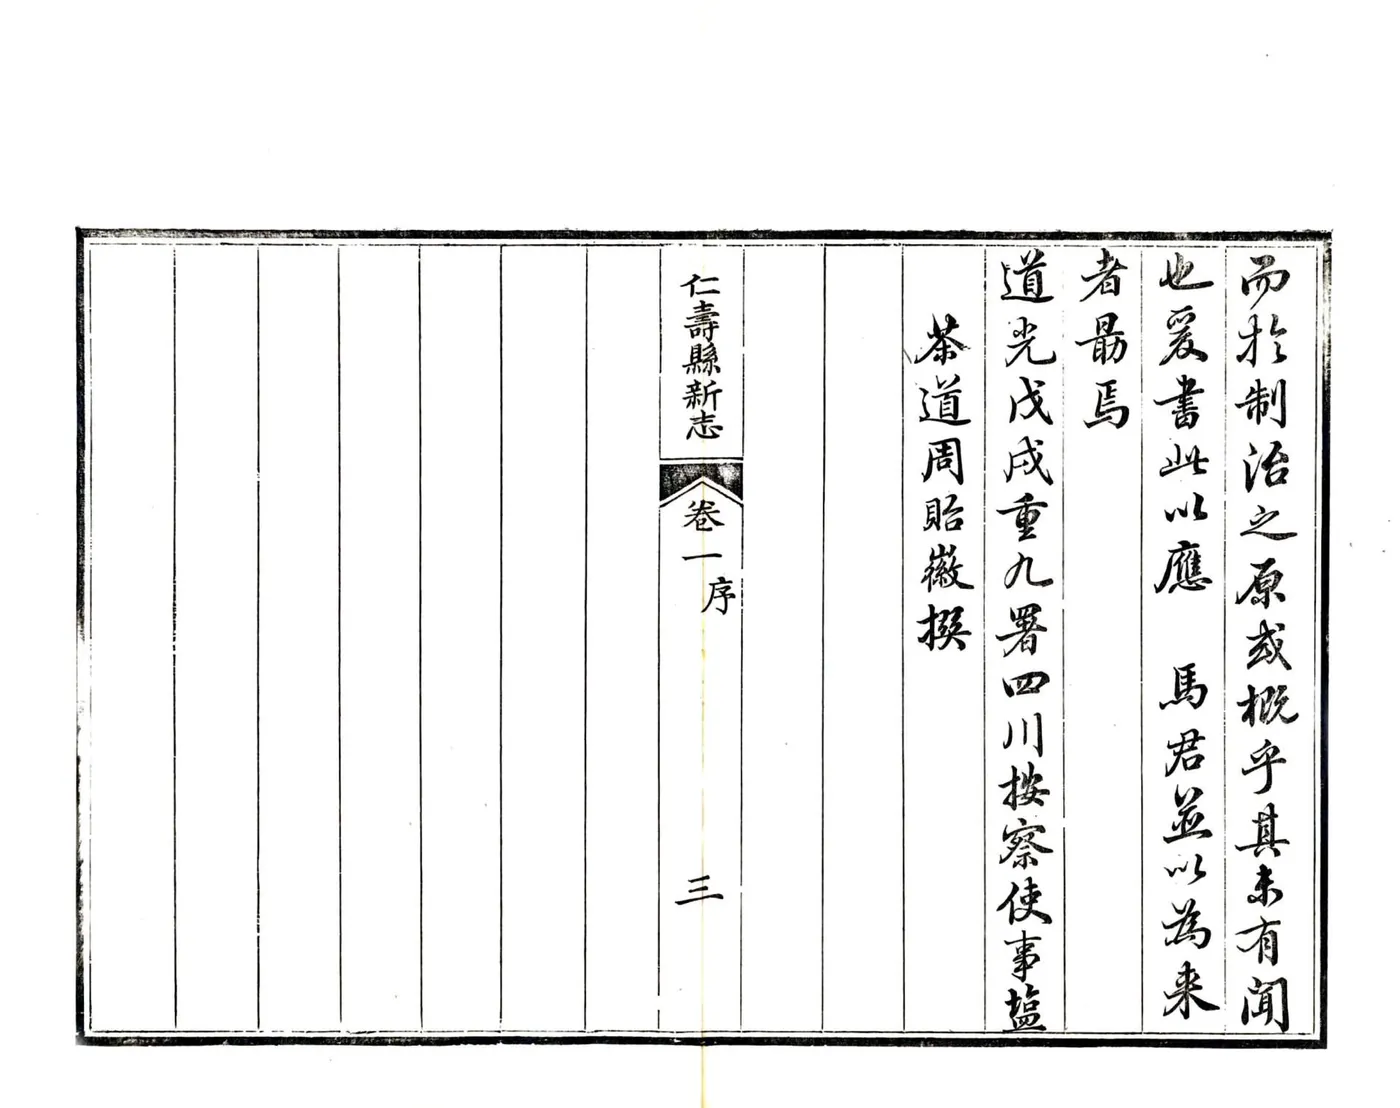 而於制治之原或概乎其未有聞
也爰書此以應　馬君並以為来
者勗焉
道光戊戌重九署四川按察使事塩
茶道周貽徽撰
仁壽縣新志
卷一
序
三